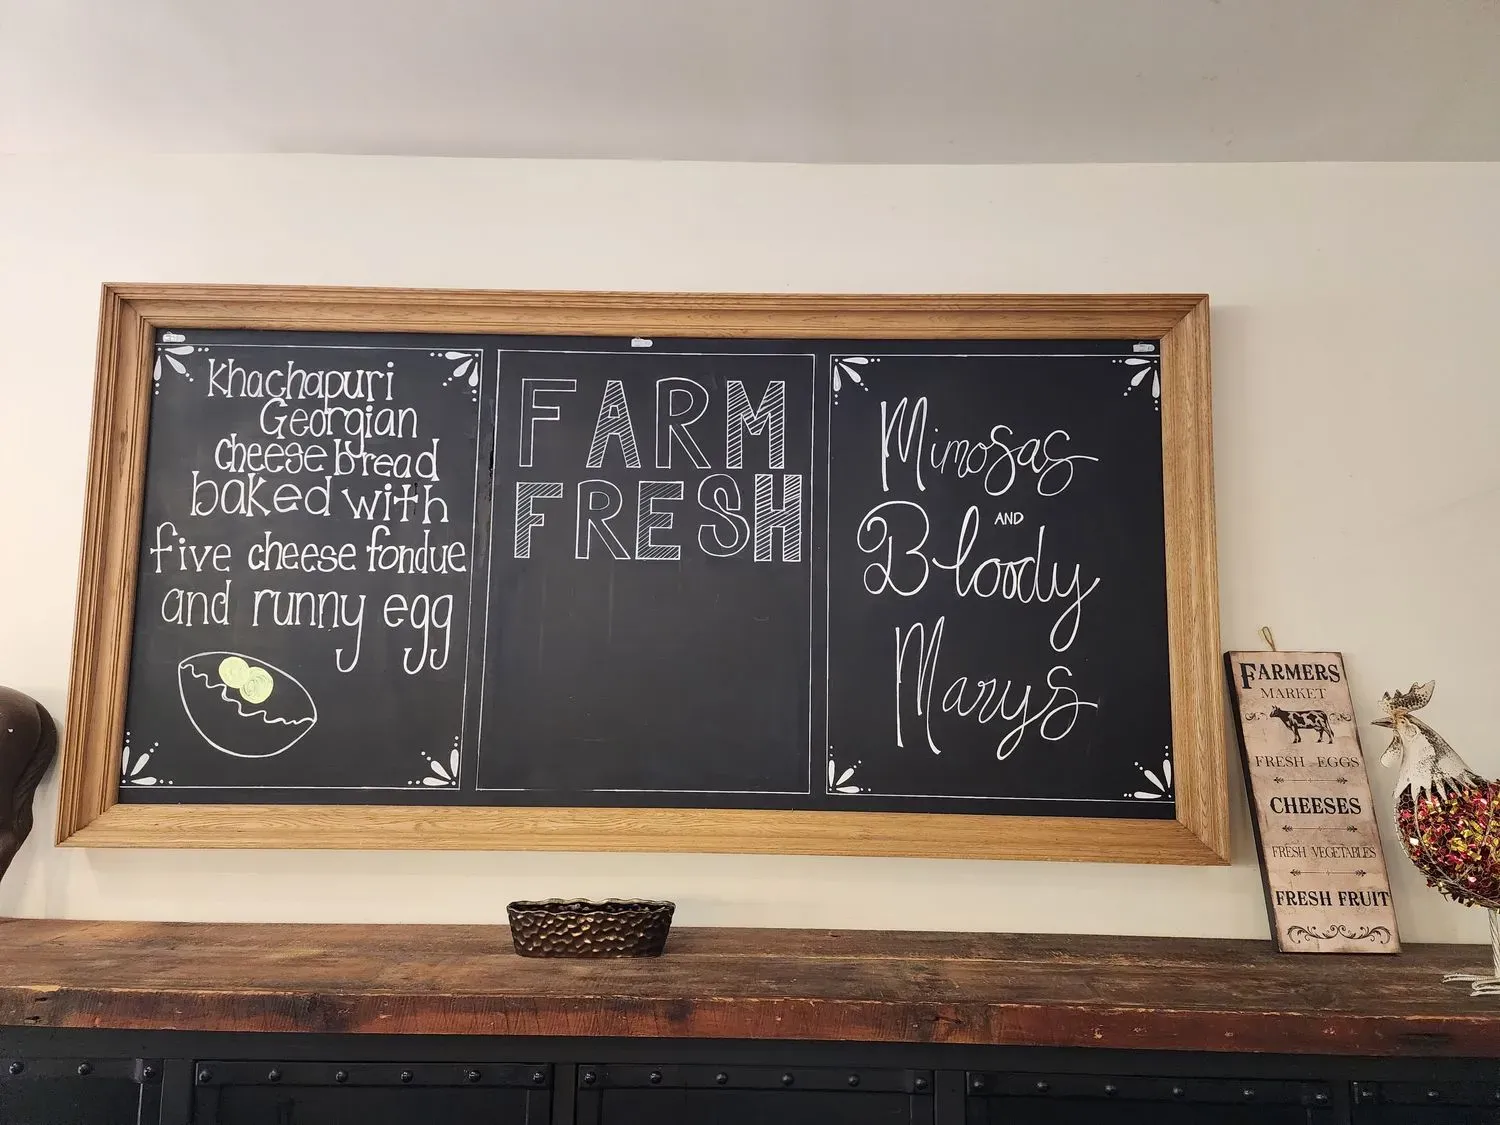 Khachapuri
Georgian
cheese bread
baked with
five cheese fondue
and runny egg
FARM
FRESH
Mimosas
AND
Bloody
Marys
FARMERS
MARKET
FRESH EGGS
CHEESES
FRESH VEGETABLES
FRESH FRUIT